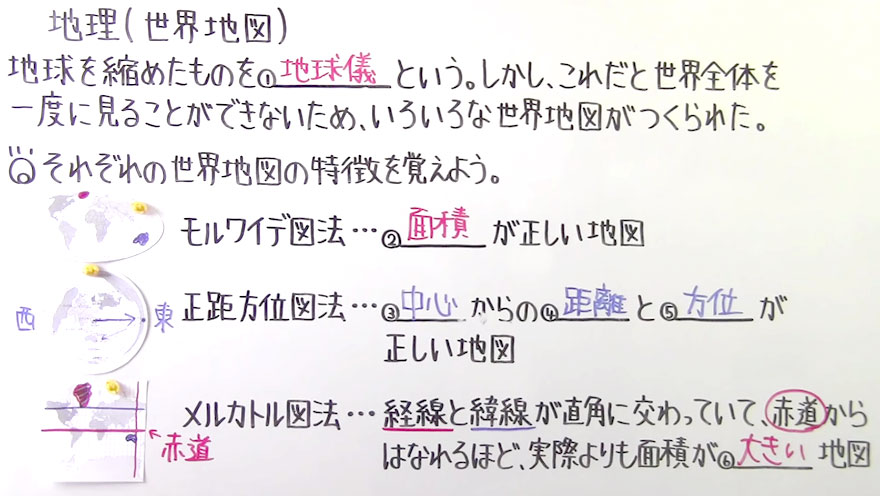 地理(世界地図)
地球を縮めたものを①地球儀という。しかし、これだと世界全体を
一度に見ることができないため、いろいろな世界地図がつくられた。
それぞれの世界地図の特徴を覚えよう。
モルワイデ図法…②面積が正しい地図
西 東 正距方位図法…③中心からの④距離と⑤方位が
正しい地図
メルカトル図法…経線と緯線が直角に交わっていて、赤道から
←赤道 はなれるほど、実際よりも面積が⑥大きい地図